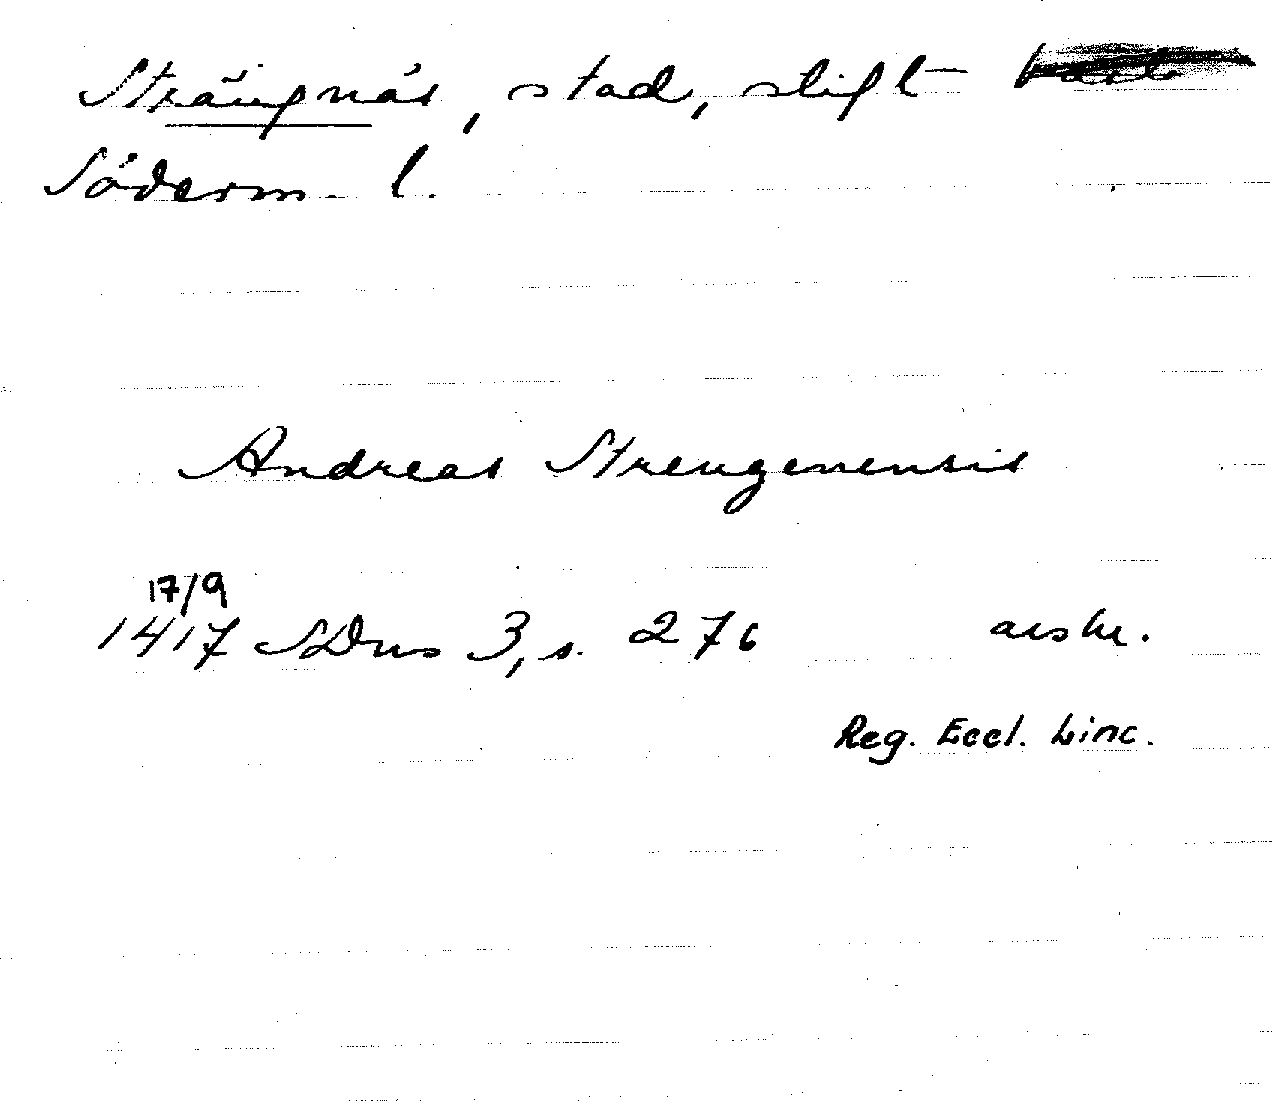 Strängnäs, stad, stift
Söderm. l.
Andreas Strengenensis
17/9
1417 SDns 3, s. 276 avskr.
Reg. Eccl. Linc.